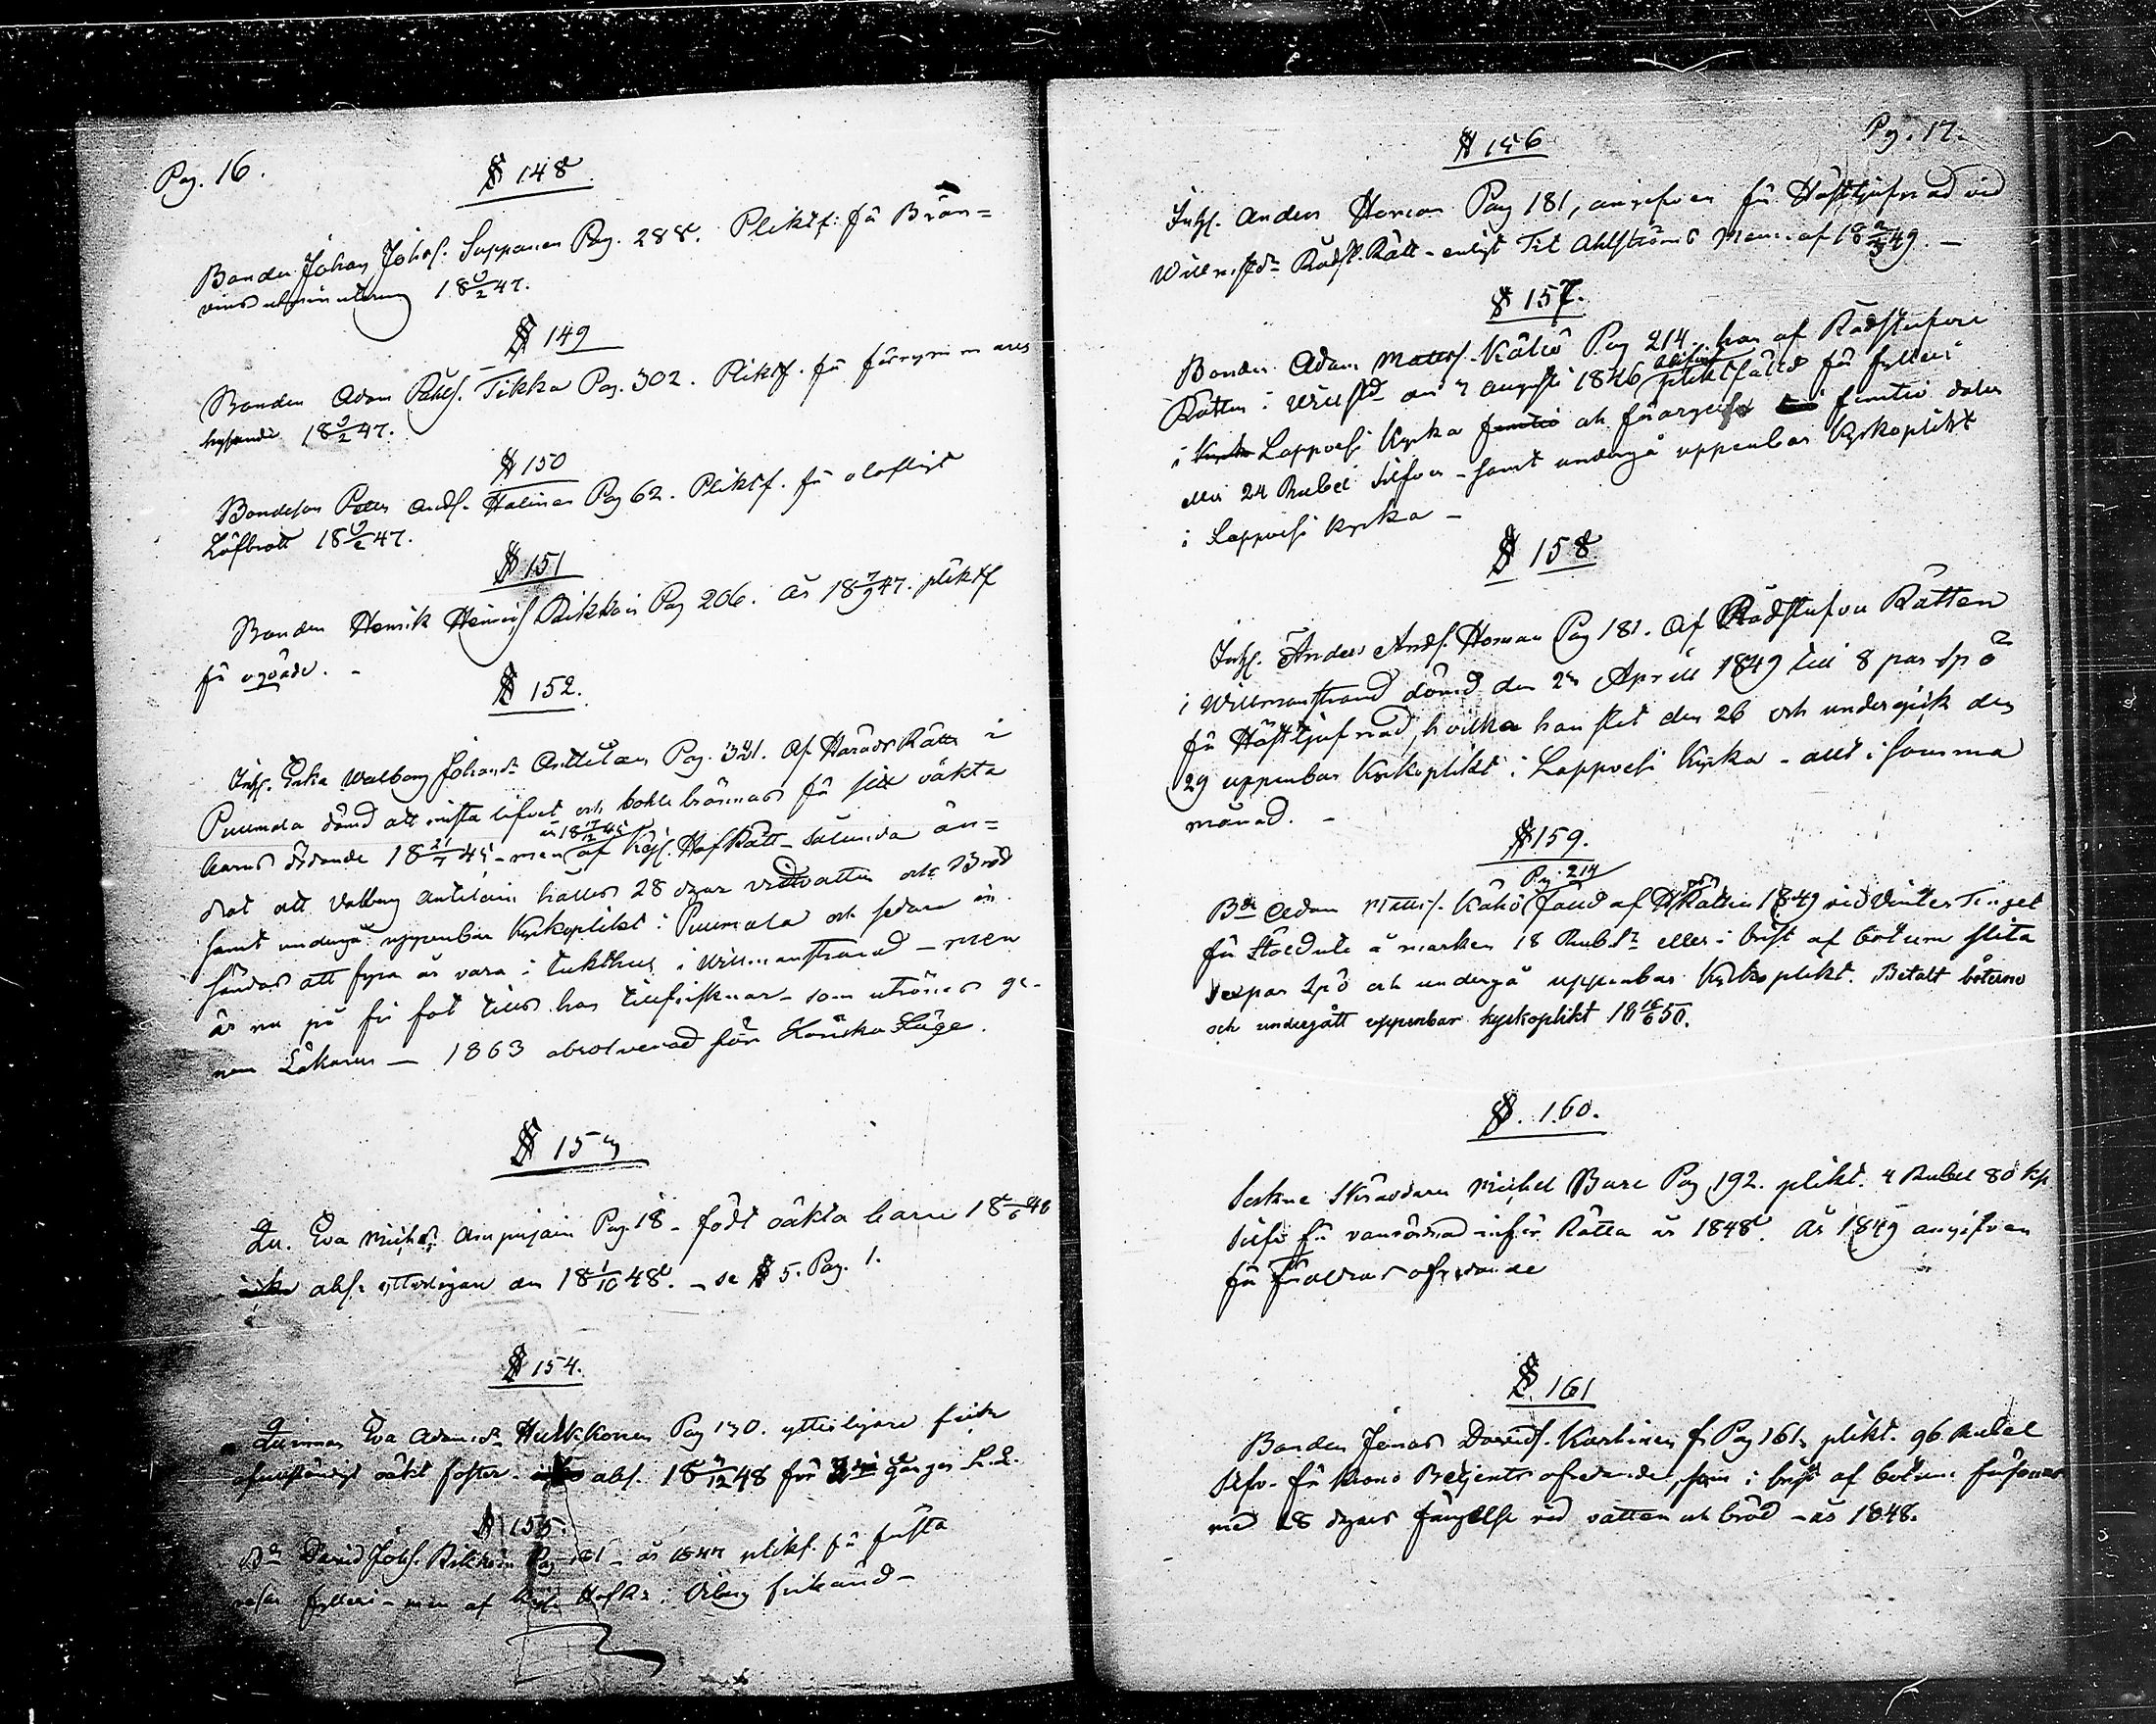 Pag. 16.
§ 148.
Bonden Johan Johs. Suppanen Pag. 288. Pliktf: för Brän=
vins utminutering 18 9/2 47.
§ 149
Bonden Adam Påls. Tikka Pag. 302. Pliktf. för förrymmares
hysande 18 9/2 47.
§ 150
Bondeson Petter Ands. Halinen Pag 62. Pliktf. för olofligt
Löfbrott 18 9/2 47.
§ 151
Bonden Henrik Henrics Rikkoin Pag 206. År 18 7/9 47. pliktf
för ogväde. -
§ 152.
Inhs. Enka Walborg Johansdr Anttilain Pag. 321. Af HäradsRätten i
Puumala dömd att mista lifvet och bohle brännas för sitt oäkta
barns dödande 18 21/7 45 - men år 18 17/12 45 af Kejs. HofRätt - sålunda än=
drat att Valborg Antilain hålles 28 dygn vid vatten och Bröd
samt undergå uppenbar Kyrkoplikt i Puumala och sedan in
sändas att fyra år vara i tukthus i Willmanstrand - men
är nu på fri fot tills hon tillfrisknar - som utrönes ge-
nom Läkaren - 1863 absolverad från Kanska Läge.
§ 153
Qu. Eva Michelsdr Ampujain Pag. 18 - födt oäkta barn 18 /6 48
abs. ytterligare den 18 1/10 48. - se § 5. Pag. 1.
§ 154.
Quinnan Eva Adamsdr Hulkkonen Pag 130. ytterligare
ofullständigt oäkt foster - abs. 18 3/12 48 för gången L. L.
§ 155.
Bd David Johs. Rikkoin Pag 181 - år 1847 plikf. för första
resan fylleri - men af Kejs. HofR. i Viborg frikänd -
Pg. 17.
§ 156
Inhs. Anders Homan Pag 181, angifven för Hästtjufnad vid
Willm.stds Rådst. Rätt - enligt Tit Ahlströms Mem. af 18 2/3 49. -
§ 157.
Bonden Adam Matts. Kähö Pag 214. har af Rådstufvu
Rätten i Willstd den 7 Augusti 1846 pliktfälld för fylleri
i Lappvesi Kyrka och förargelse femtio daler
eller 24 Rubel Silfver - samt undergå uppenbar Kyrkoplikt
i Lappvesi Kyrka -
§ 158
Inhs. Anders Ands. Homan Pag 181. Af Rådstufvu Rätten
i Willmanstrand dömd den 2n April 1849 till 8 par Spö
för Hästtjufnad, hvilka han slet den 26 och undergick den
29 uppenbar Kyrkoplikt i Lappvesi Kyrka - allt i samma
månad. -
§ 159.
Pg. 214
Bdn Adam Matts. Kähö fälld af HdsRätten 1849 vid Vinter Tinget
för Stöld ute å marken 18 Rub. Sr eller i brist af böterne slita
sexpar Spö och undergå uppenbar Kyrkoplikt. Betalt böterne
och undergått uppenbar kyrkoplikt 18 16/6 50.
§. 160.
Sockne Skräddaren Michel Bure Pag 192. plikt. 4 Rubel 80 kp
Silfr för vanvördnad inför Rätta år 1848. År 1849 angifven
för Föräldrars ofredande
§. 161
Bonden Jonas Davids. Karhinen fr Pag 161, plikt. 96 Rubel
Silfr. för Krono Betjents ofredande, som i brist af böterne försonas
med 28 dygns fängelse vid vatten och bröd - år 1848.